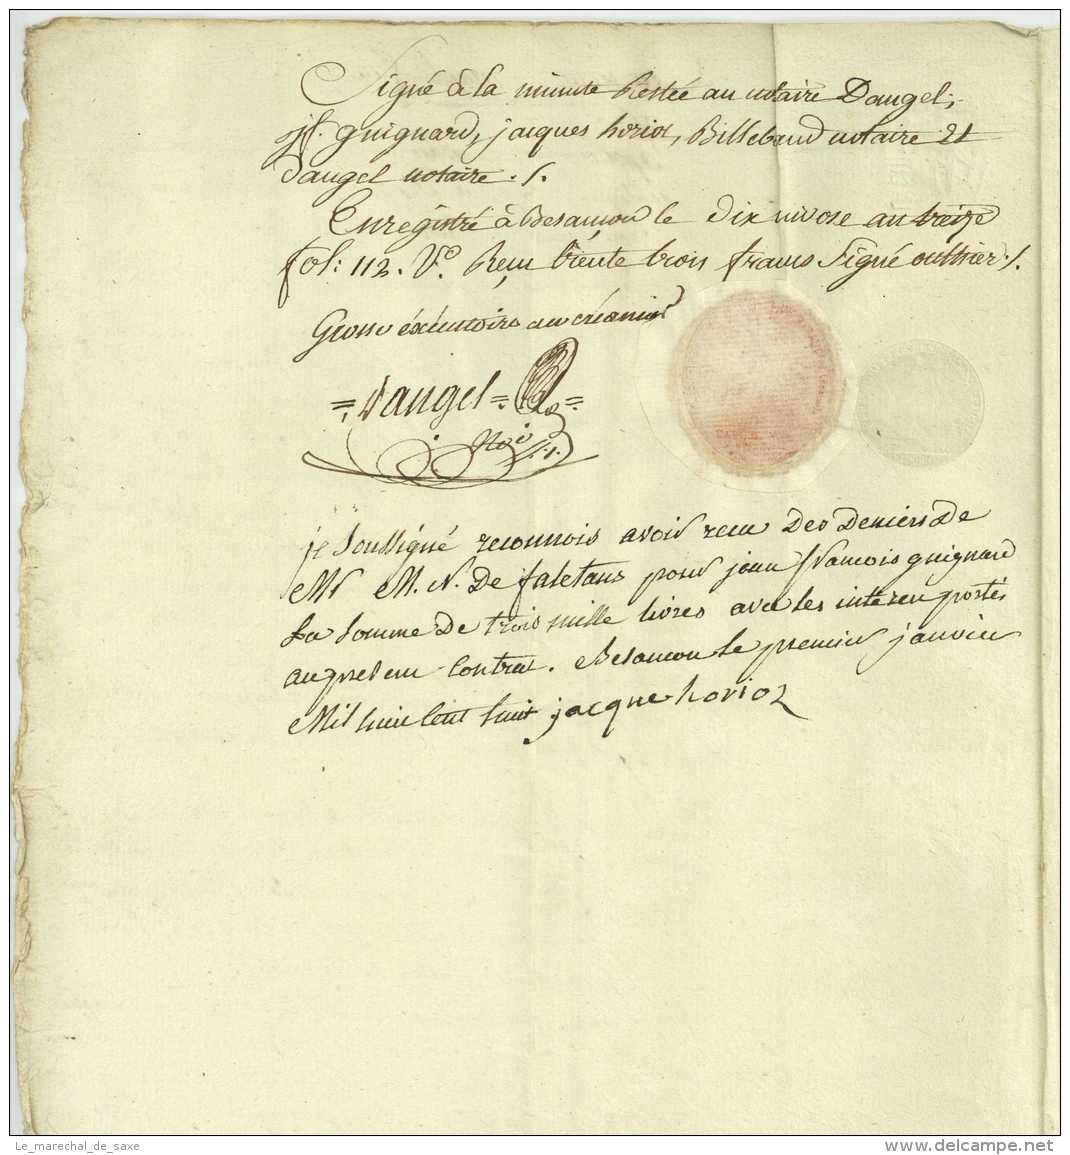 Signé à la minute Restée au notaire Daugel;
jf. guignard, jacques horiot, Billebaud notaire Et
daugel notaire ./.
Enregistré à Besançon le dix nivose an treize
fol: 112. Vo. Reçu trente trois francs Signé outhier ./.
Grosse éxécutoire au créancier
= daugel =
Noe
je Soussigné reconnois avoir recu Des Deniers De
Mr M. N. De faletans pour jean francois guignard
La Somme De trois mille livres avec les interets portés
au present contrat. Besancon le premier janvier
Mil huit Cent huit jacque horioz
Le_marechal_de_saxe
www.delcampe.net